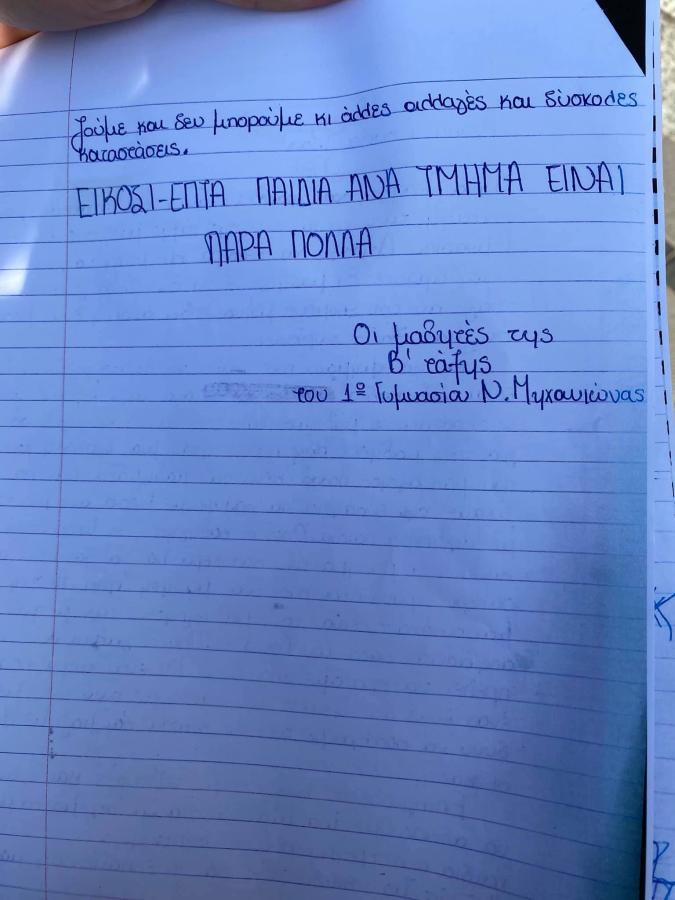 ζούμε και δεν μπορούμε κι άλλες αλλαγές και δύσκολες
καταστάσεις.
ΕΙΚΟΣΙ-ΕΠΤΑ ΠΑΙΔΙΑ ΑΝΑ ΤΜΗΜΑ ΕΙΝΑΙ
ΠΑΡΑ ΠΟΛΛΑ
Οι μαθητές της
Β' τάξης
του 1º Γυμνασίου Ν. Μηχανιώνας